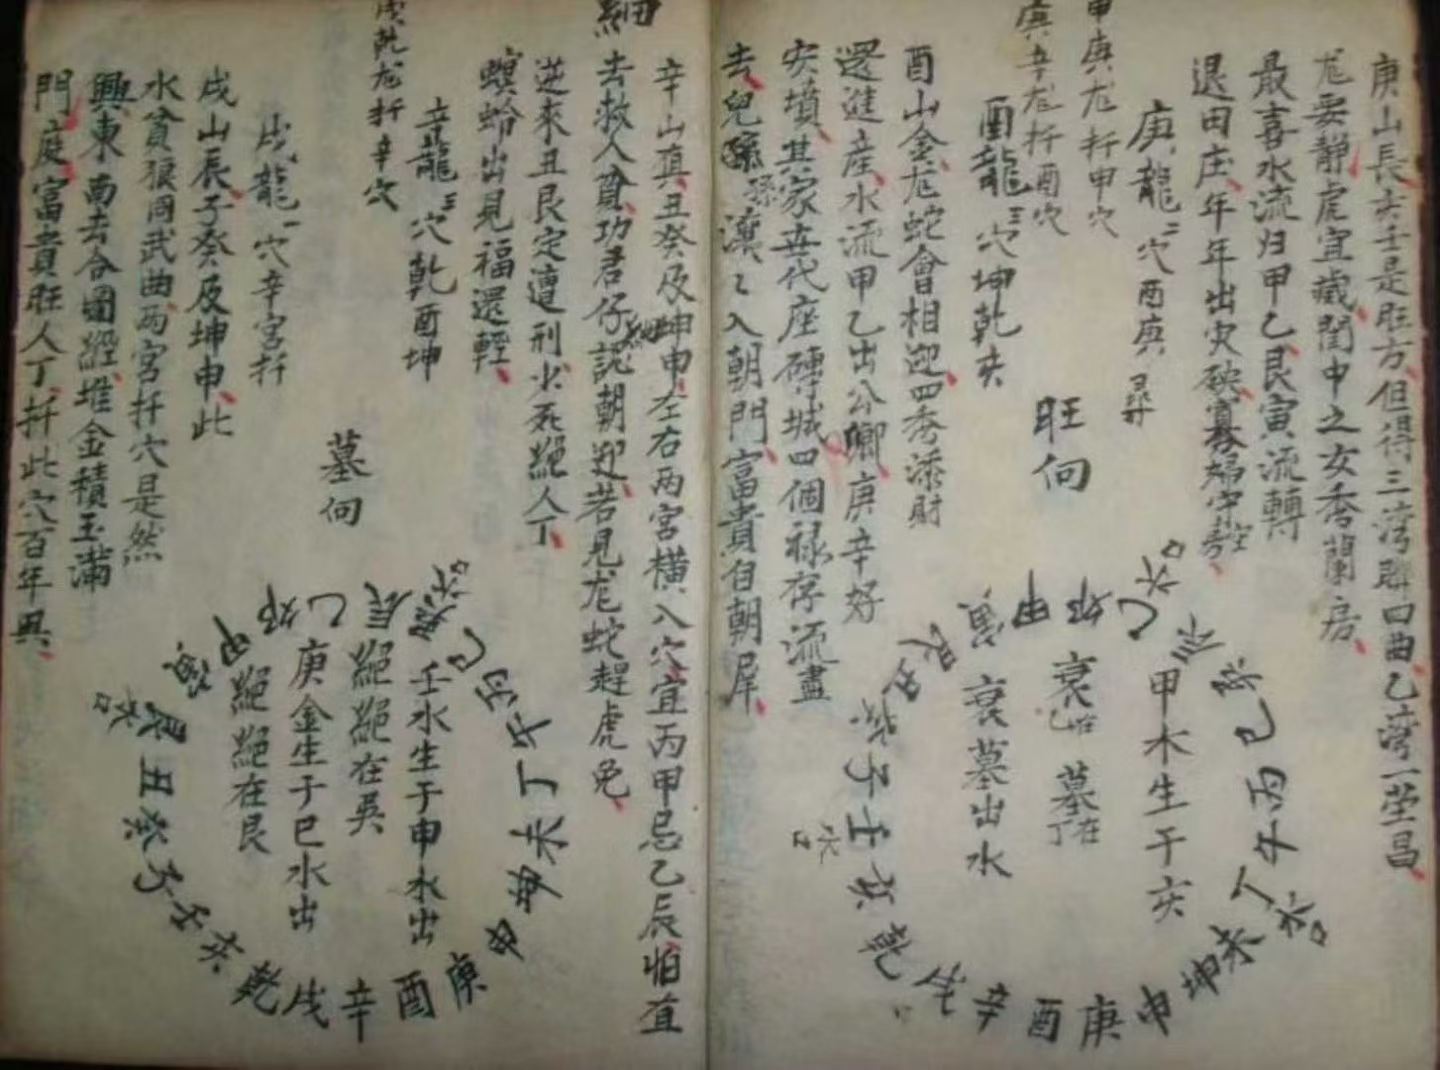 庚山長亥壬是旺方、但得三湾聯曰曲、乙湾一茔昌、
龙要静虎宜藏、閨中之女秀蘭房、
最喜水流归甲乙、艮寅流轉
退田庄、年年出灾殃、寡婦守空房、
庚龍二穴酉庚尋
申庚龙扦申穴
庚辛龙扦酉穴
旺向
酉龍三穴坤乾亥
酉山金、龙蛇會相迎、四秀添財
還進産、水流甲乙出公卿、庚辛好
安墳、其家壹代座磚城、四個禄存流盡
去、兒孫漢々入朝門、富貴自朝犀、
甲木生于亥
衰在乙 墓在丁
衰墓出水
乙 辰 巽 巳 丙 午 丁 未 坤 申 庚 酉 辛 戌 乾 亥 壬 子 癸 丑 艮 寅 甲 卯
水口
水口
水口
細
辛山真、丑癸及坤申、左右两宮横入穴、宜丙甲忌乙辰怕直
去救入貧、功君仔細認朝迎、若見龙蛇趕虎兔、
逆來丑艮定遭刑、少死絕人丁、
螟蛉出見福還輕、
辛龍三穴乾酉坤
戌乾龙扦辛穴
墓向
戌龍一穴辛宮扦
戌山辰、子癸及坤申、此
水貪狼同武曲、两宮扦穴是然
興、東南去合圖經、堆金積玉滿
門庭、富貴旺人丁、扦此穴百年興、
壬水生于申水出
絕絕在巽
庚金生于巳水出
絕絕在艮
巽 巳 丙 午 丁 未 坤 申 庚 酉 辛 戌 乾 亥 壬 子 癸 丑 艮 寅 甲 卯 乙 辰
水口
水口